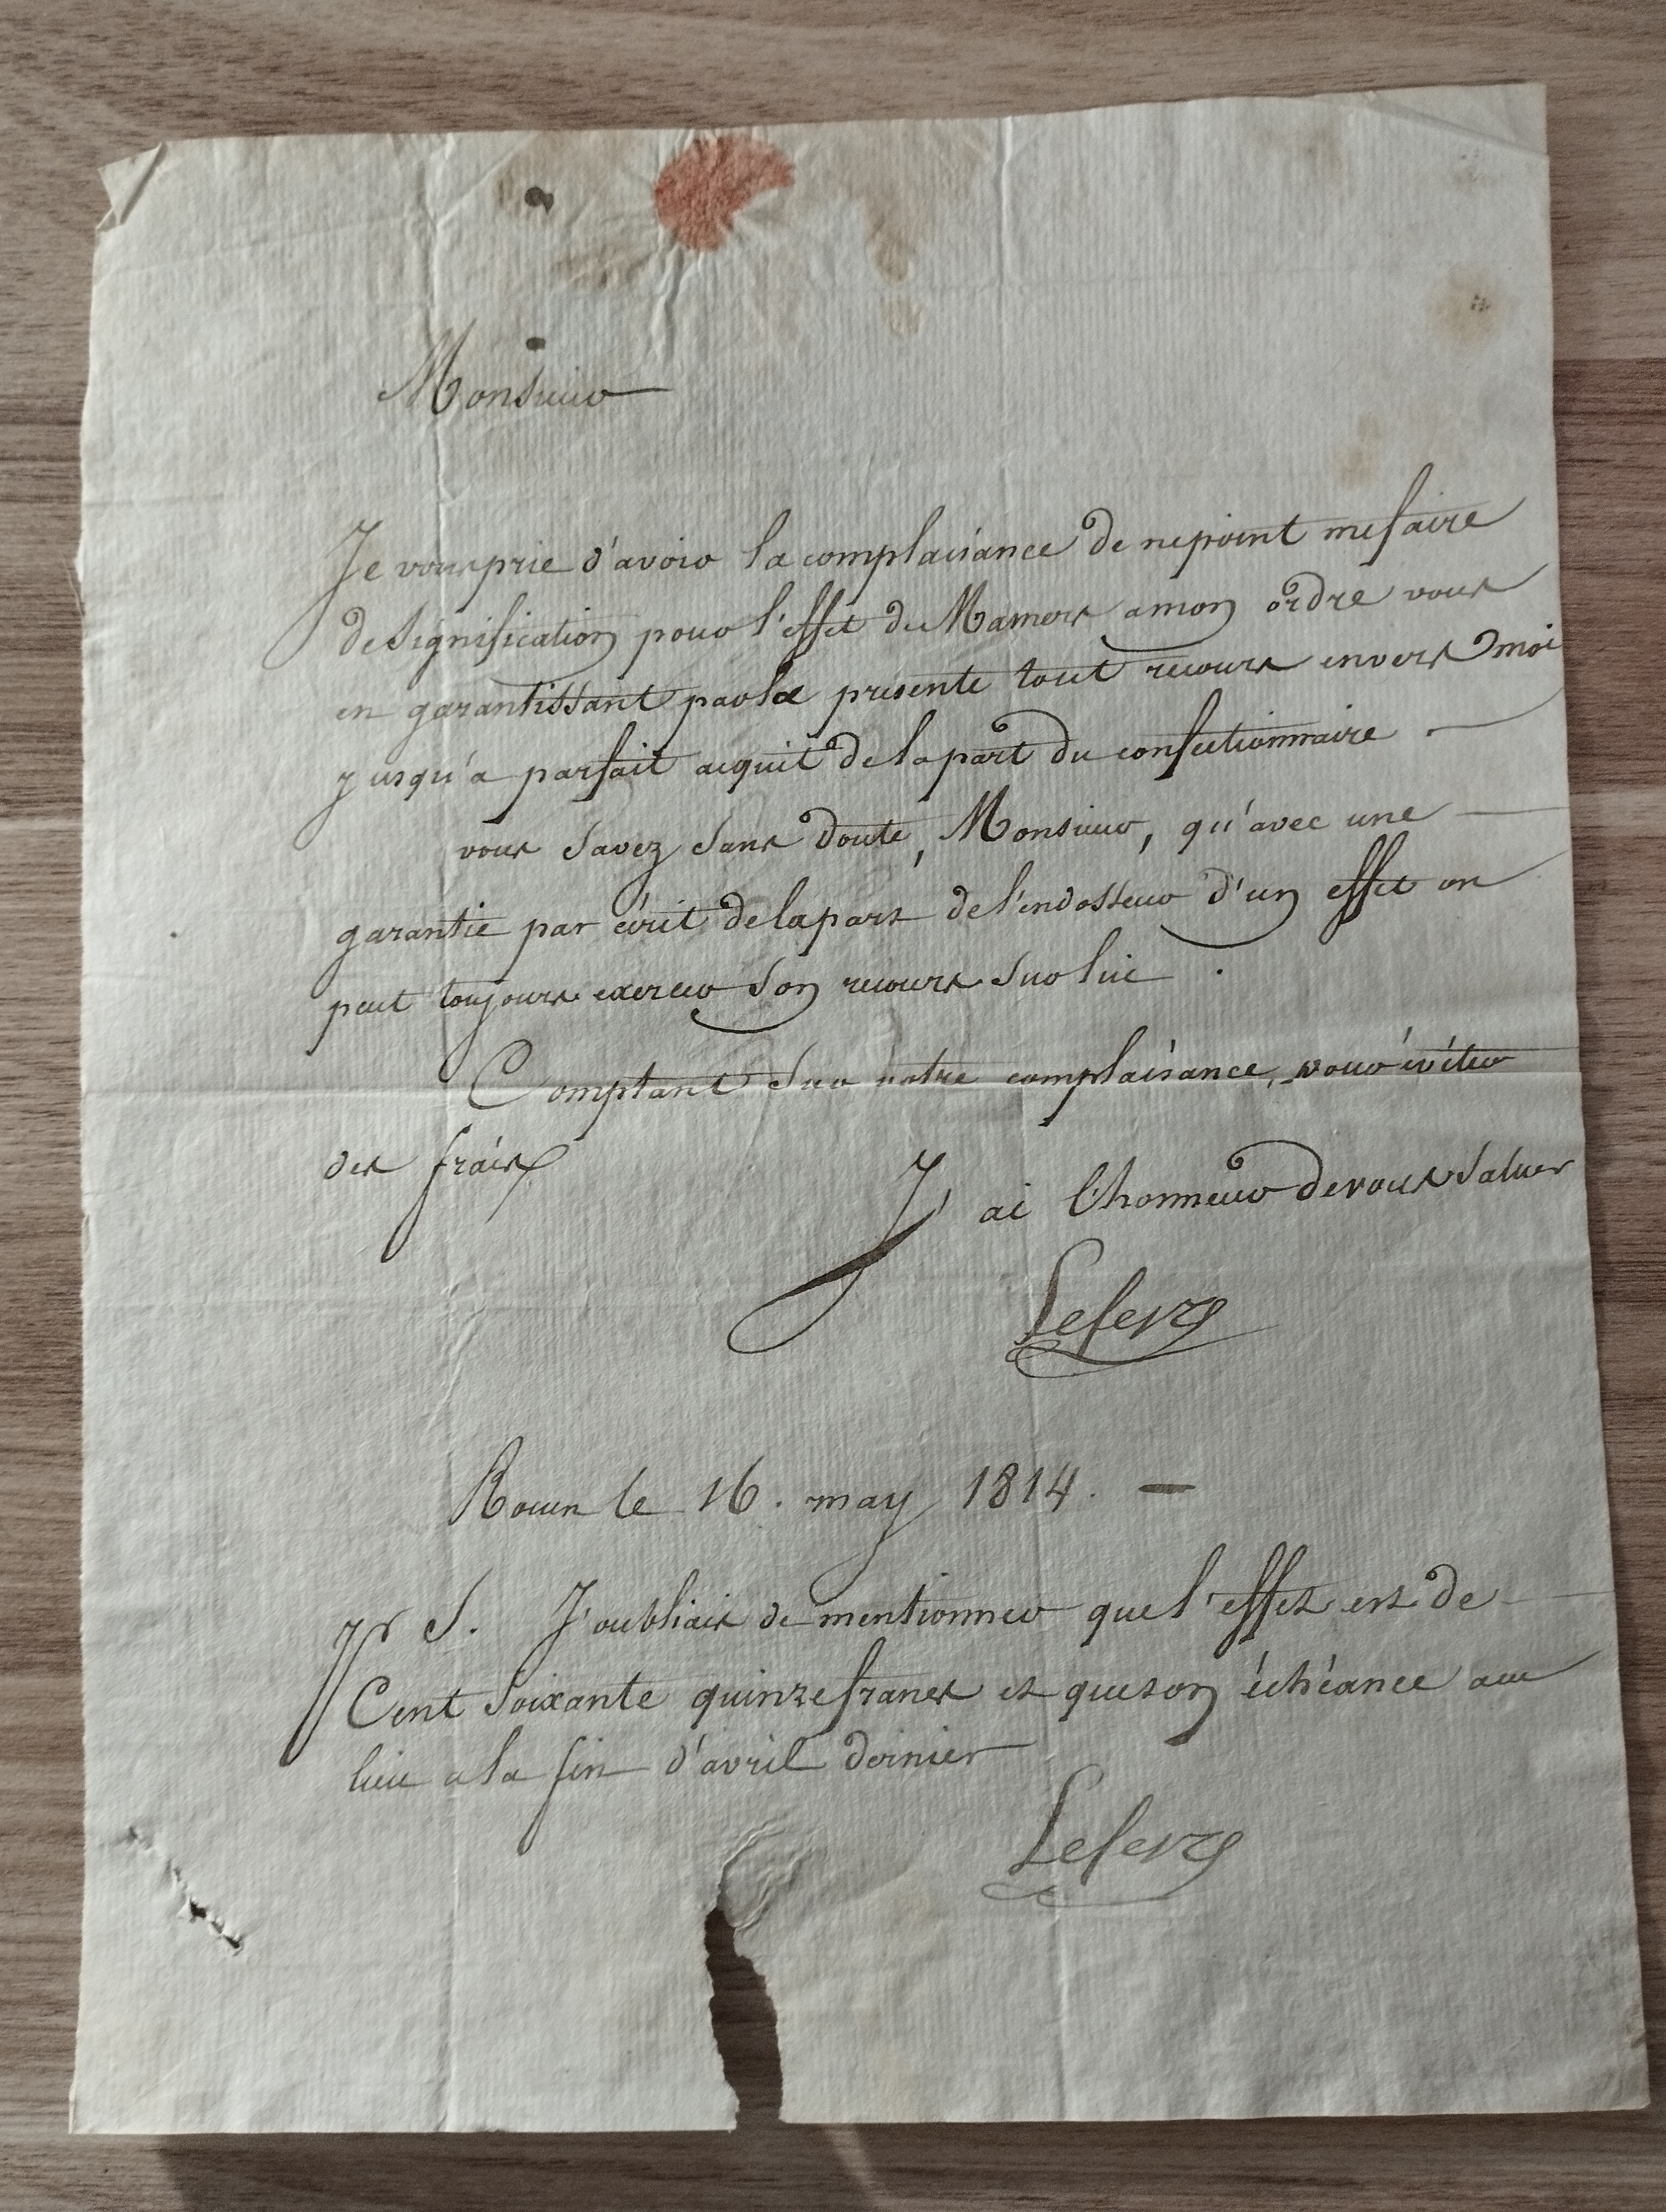 Monsieur
Je vous prie d'avoir la complaisance de ne point me faire
de signification pour l'effet de Mamers a mon ordre vous
en garantissant par la presente tout recours envers moi
jusqu'a parfait acquit de la part du confectionnaire .
vous savez sans doute, Monsieur, qu'avec une
garantie par écrit de la part de l'endosseur d'un effet on
peut toujours exercer son recours sur lui .
Comptant sur votre complaisance, pour éviter
des frais
J'ai l'honneur de vous saluer
Lefevre
Rouen le 16. may 1814. —
P S. J'oubliais de mentionner que l'effet est de
Cent soixante quinze francs et que son échéance a eu
lieu a la fin d'avril dernier
Lefevre